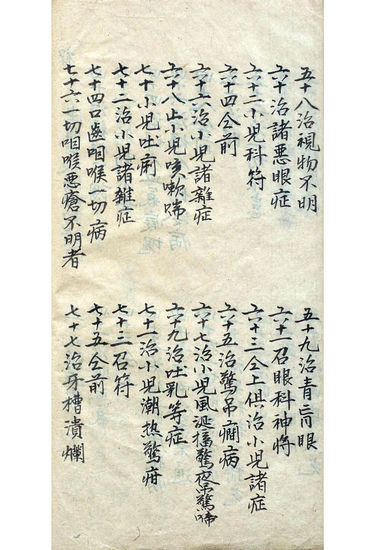 五十八治視物不明
五十九治青盲眼
六十治諸惡眼症
六十一召眼科神將
六十二小児科符
六十三仝上俱治小児諸症
六十四仝前
六十五治驚吊癇病
六十六治小児諸雜症
六十七治小児風涎搐驚夜驚啼
六十八止小児咳嗽喘
六十九治吐乳等症
七十小児吐痢
七十一治小児潮热驚疳
七十二治小児諸雜症
七十三召符
七十四口齒咽喉一切病
七十五仝前
七十六一切咽喉惡瘡不明者
七十七治牙槽潰爛